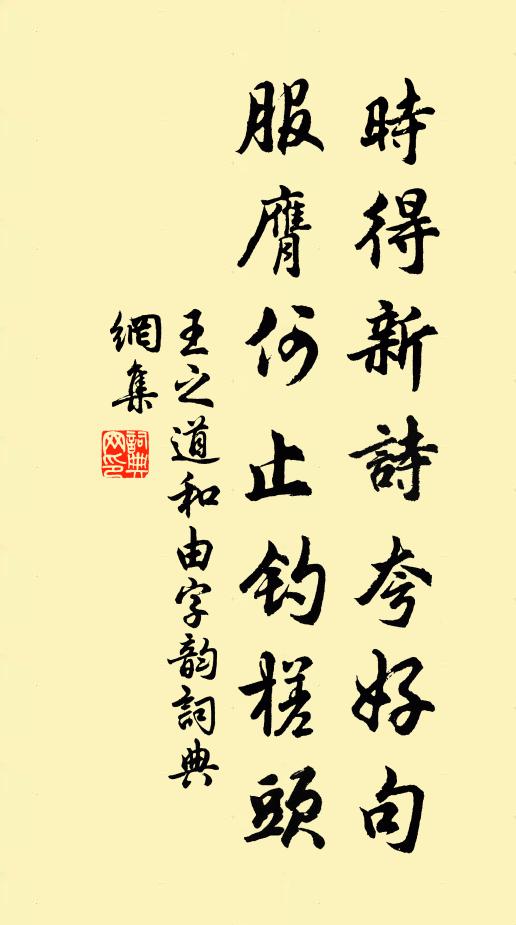 時得新詩夸好句
服膺何止钓槎頭
王之道和由字韵詞典
網集
詞典網印